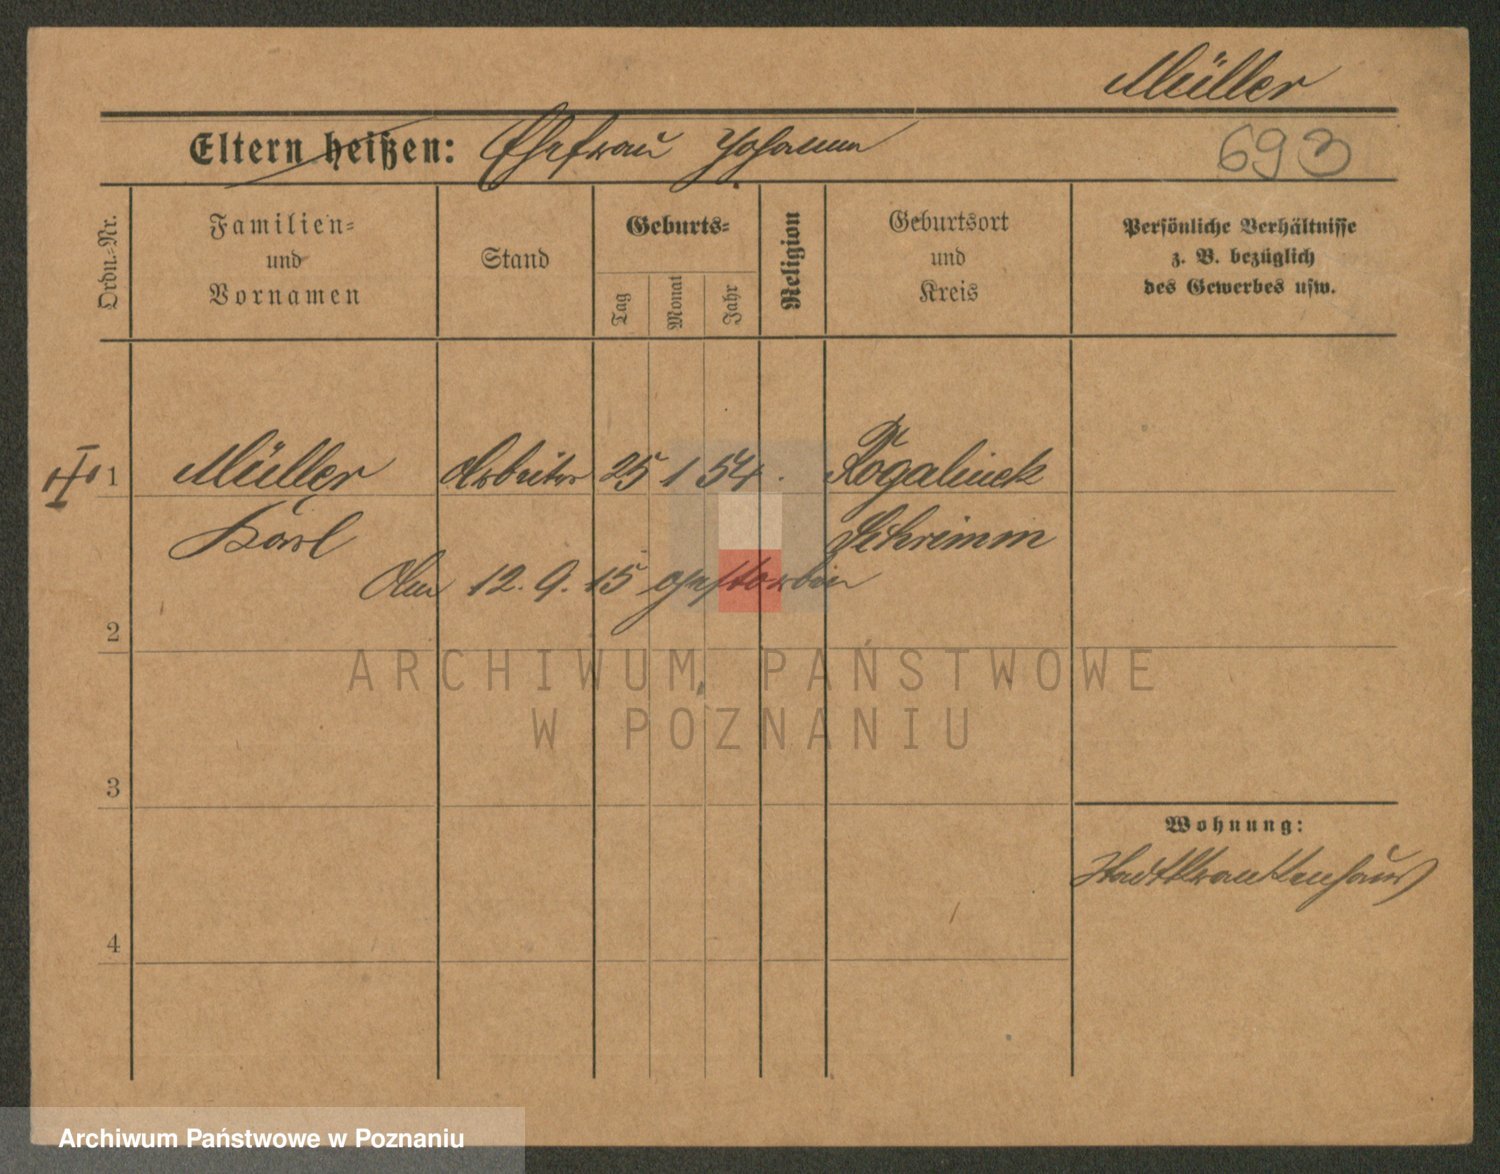 Müller
Eltern heißen: Ehefrau Johanna
693
Ordn.-Nr.
Familien- und Vornamen
Stand
Geburts-
Tag
Monat
Jahr
Religion
Geburtsort und Kreis
Persönliche Verhältnisse
z. B. bezüglich
des Gewerbes usw.
1 Müller Arbeiter 25 1 54. Rogalinek
Karl Schrimm
Am 12.9.15 gestorben
2
ARCHIWUM PAŃSTWOWE
W POZNANIU
3
Wohnung:
Stadtkrankenhaus
4
Archiwum Państwowe w Poznaniu